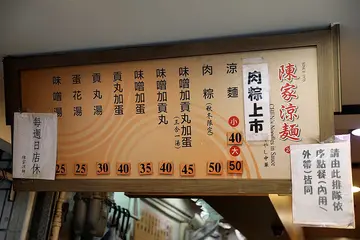 陳家涼麵
CHEN's Noodles in Sauce
肉粽上市
涼麵 小40 大50
肉粽(秋冬限定) 50
味噌加貢丸加蛋(三合一湯) 45
味噌加貢丸 40
味噌加蛋 35
貢丸加蛋 40
貢丸湯 30
蛋花湯 25
味噌湯 25
每週日店休
請由此排隊依
序點餐(內用/
外帶)皆同